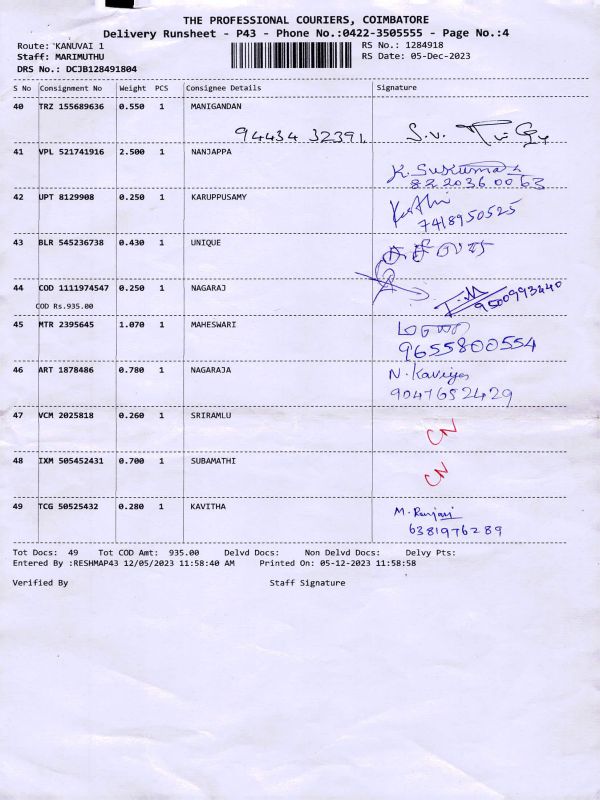 THE PROFESSIONAL COURIERS, COIMBATORE
Delivery Runsheet - P43 - Phone No.:0422-3505555 - Page No.:4
Route: KANUVAI 1
RS No.: 1284918
Staff: MARIMUTHU
RS Date: 05-Dec-2023
DRS No.: DCJB128491804
S No Consignment No Weight PCS Consignee Details Signature
40 TRZ 155689636 0.550 1 MANIGANDAN
94434 32391 S.v.
41 VPL 521741916 2.500 1 NANJAPPA
K. Sukumar
8220360063
42 UPT 8129908 0.250 1 KARUPPUSAMY
7418950525
43 BLR 545236738 0.430 1 UNIQUE
44 COD 1111974547 0.250 1 NAGARAJ
COD Rs.935.00
9500993440
45 MTR 2395645 1.070 1 MAHESWARI
9655800554
46 ART 1878486 0.780 1 NAGARAJA
N. Kaviya
9047652429
47 VCM 2025818 0.260 1 SRIRAMLU
CN
48 IXM 505452431 0.700 1 SUBAMATHI
CN
49 TCG 50525432 0.280 1 KAVITHA
M. Ranjani
6381976289
Tot Docs: 49 Tot COD Amt: 935.00 Delvd Docs: Non Delvd Docs: Delvy Pts:
Entered By :RESHMAP43 12/05/2023 11:58:40 AM Printed On: 05-12-2023 11:58:58
Verified By Staff Signature